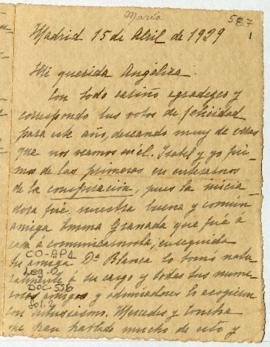 María
587
1
Madrid 15 de Abril de 1929
Mi querida Angelina:
Con todo cariño agradezco y
correspondo tus votos de felicidad
para este año, deseando muy de veras
que nos veamos en él. Isabel y yo fui-
mos de las primeras en enterarnos
de la conspiración, pues la inicia-
dora fué nuestra buena y común
amiga Emma Granada que fué á
casa á comunicárnosla, enseguida
su amiga Dª Blanca lo tomó natu-
ralmente á su cargo y todas tus nume-
rosas amigas y admiradores lo acogieron
con entusiasmo. Mercedes y
me han hablado mucho de esto y
CO-BPA
Leg. 2
DOC-556